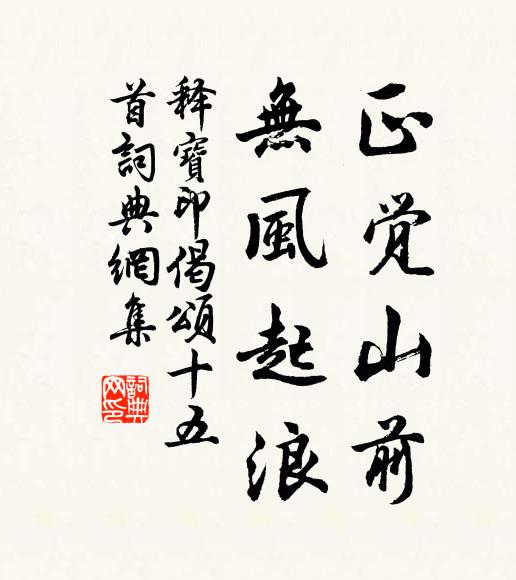 正觉山前
無風起浪
释寶印偈頌十五
首詞典網集
詞典
网印